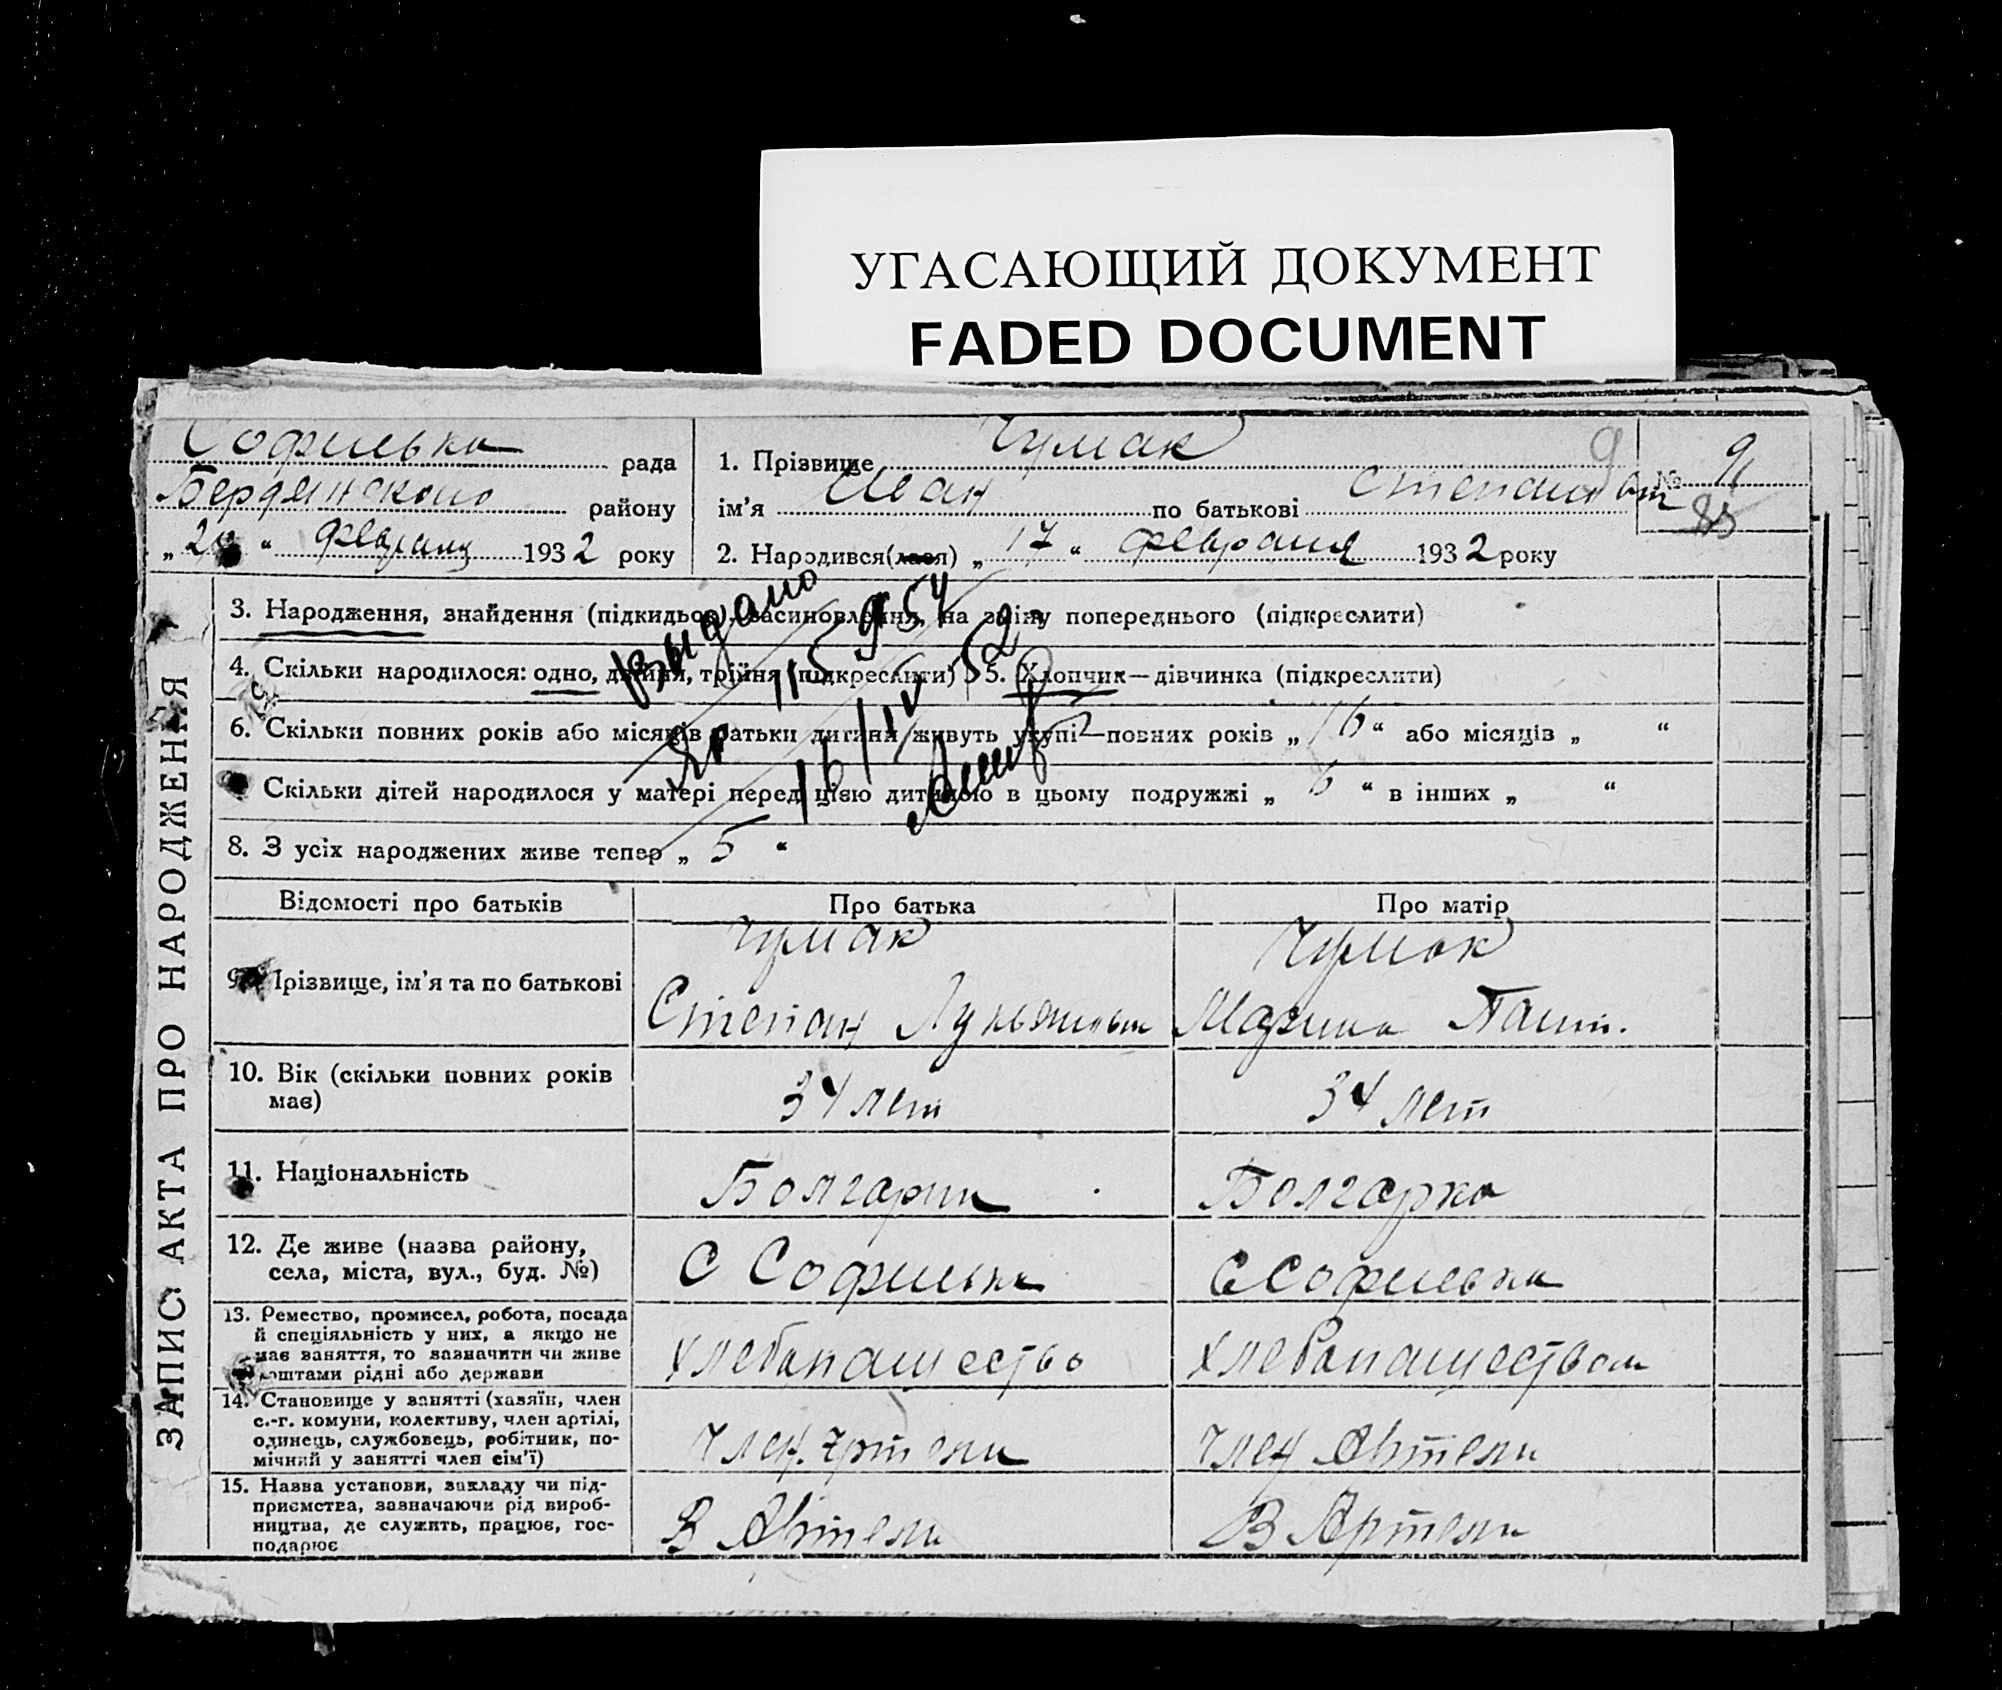 УГАСАЮЩИЙ ДОКУМЕНТ
FADED DOCUMENT
Софиевка рада
Бердянского району
„ “ Февраля 1932 року
1. Прізвище Чумак
ім’я Иван по батькові Степанов
№ 9
2. Народився(лася) „ 17 “ февраля 1932 року
ЗАПИС АКТА ПРО НАРОДЖЕННЯ
3. Народження, знайдення (підкидьок), засиновлення, на зміну попереднього (підкреслити)
4. Скільки народилося: одно, двійня, трійня (підкреслити) 5. Хлопчик—дівчинка (підкреслити)
6. Скільки повних років або місяців батьки дитини живуть укупі—повних років „ 16 “ або місяців „ “
Скільки дітей народилося у матері перед цією дитиною в цьому подружжі „ 6 “ в інших „ “
8. З усіх народжених живе тепер „ 5 “
Выдано
115954
16/IV 52
Відомості про батьків Про батька Про матір
9. Прізвище, ім’я та по батькові
Чумак
Степан Лукьянов
Чумак
Марина Пант.
10. Вік (скільки повних років
має)
34 лет
34 лет
11. Національність
Болгарин
Болгарка
12. Де живе (назва району,
села, міста, вул., буд. №)
С Софиевка
С Софиевка
13. Ремество, промисел, робота, посада
й спеціяльність у них, а якщо не
має заняття, то зазначити чи живе
коштами рідні або держави
хлебопашество
хлебопашеством
14. Становище у занятті (хазяїн, член
с.-г. комуни, колективу, член артілі,
одинець, службовець, робітник, по-
мічний у занятті член сім’ї)
Член Артели
Член Артели
15. Назва установи, закладу чи під-
приємства, зазначаючи рід вироб-
ництва, де служить, працює, гос-
подарює
В Артели
В Артели